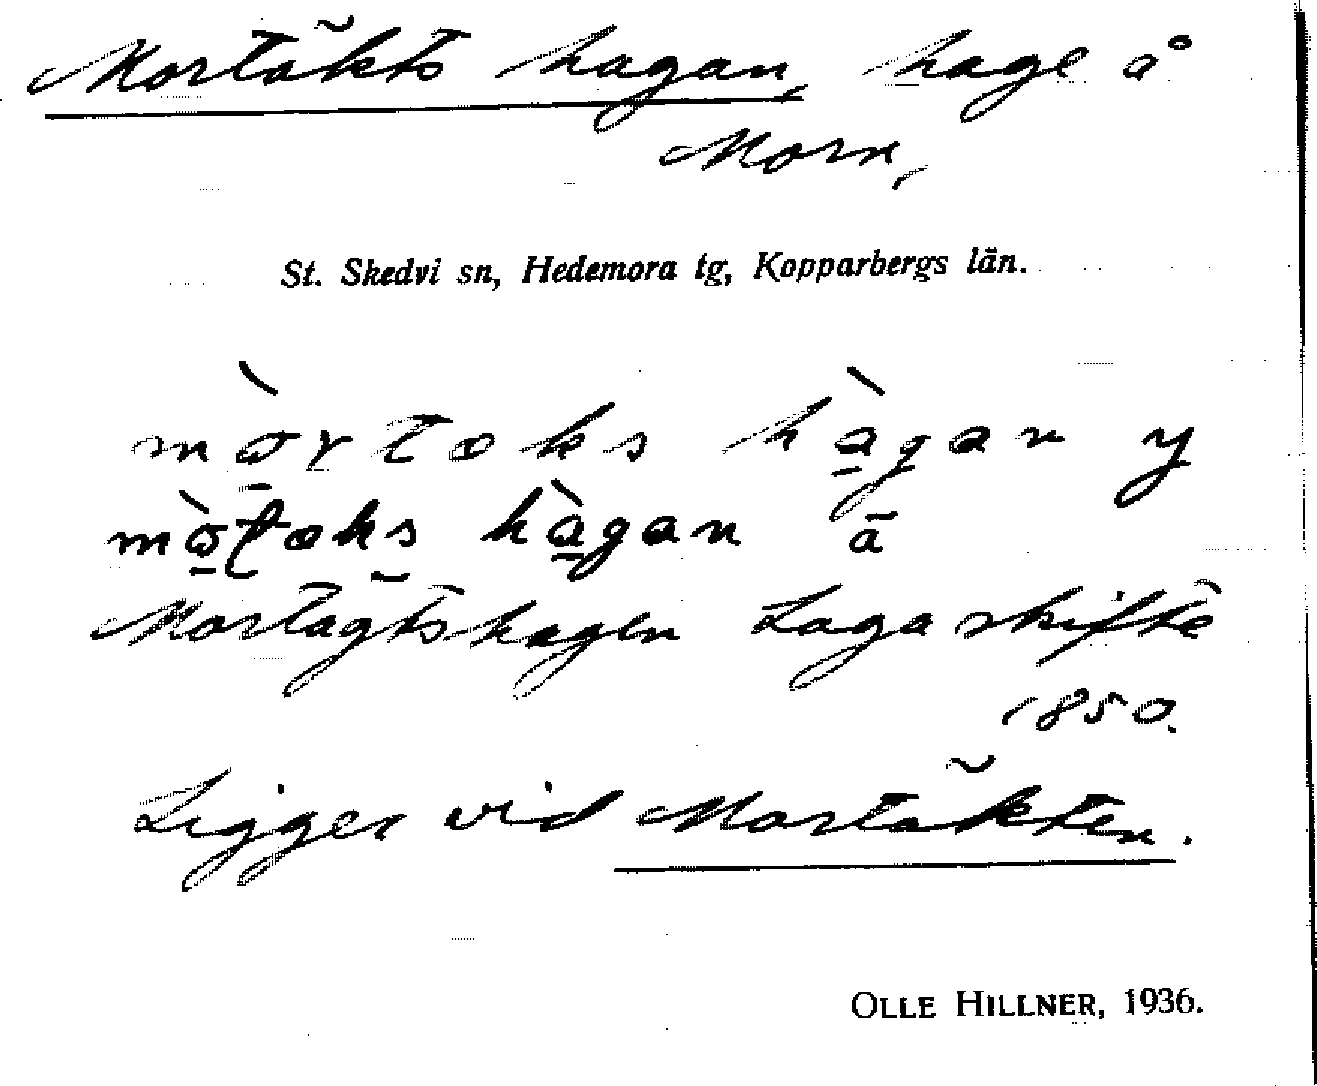 Mortäkts hagan, hage å
Morn,
St. Skedvi sn, Hedemora tg, Kopparbergs län.
mòrtoks hàgan y
mòtoks hàgan ä
Mortägtshagen Laga skifte
1850.
Ligger vid Mortäkten.
OLLE HILLNER, 1936.